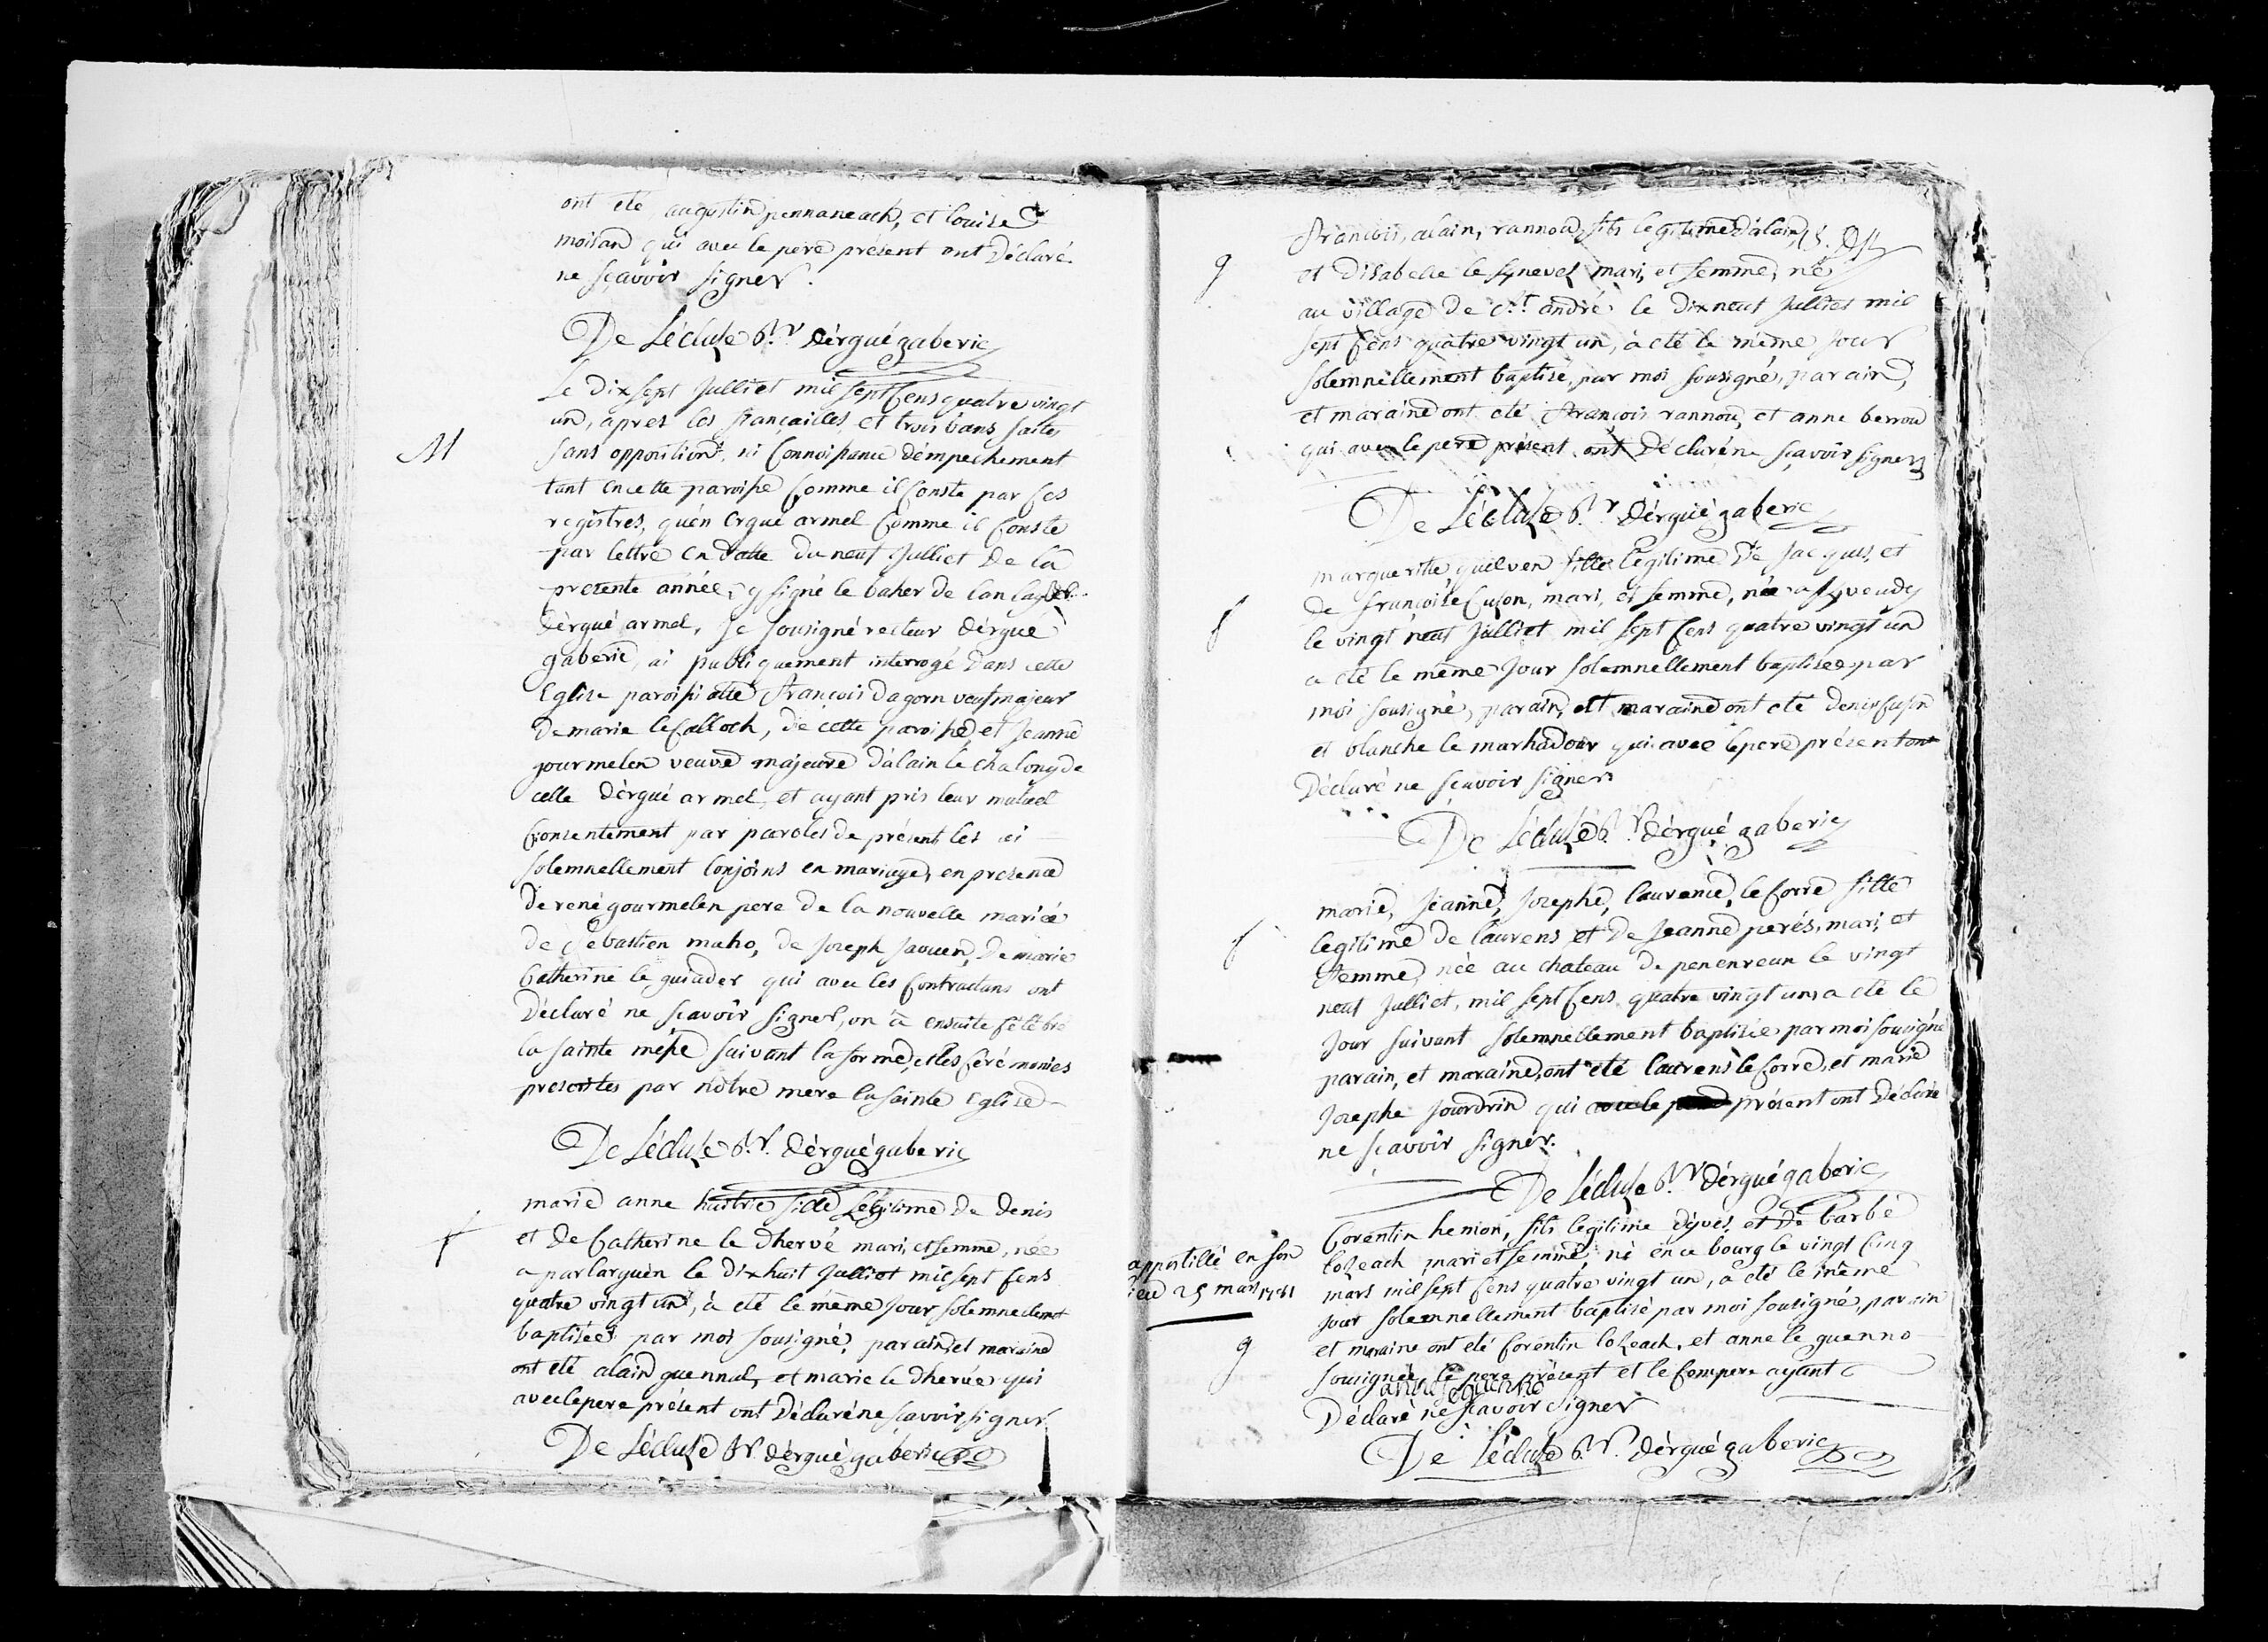 ont eté augustin pennaneach, et louise
moisan qui avec le pere présent ont Déclaré
ne sçavoir signer.
De Lécluse r.r dérguégaberic
Le Dixsept Julliet mil sept Cens quatre vingt
M
un, apres les fiançailles et trois bans faites
sans opposition, ni Connoissance démpechement
tant en cette paroisse Comme il Conste par ses
registres, quén ergué armel Comme il Conste
par lettre en datte du neuf Julliet De la
presente année, signé le baher de lan
dèrgué armel, Je sousigné recteur dérgué
gaberic, ai publiquement interrogé Dans cette
Eglise paroissialle françois Dagorn veuf majeur
De marie le Calloch, de cette paroisse, et Jeanne
gourmelen veuve majeure d'alain le chalony de
celle dèrgué armel, et ayant pris leur mutuel
Consentement par paroles de présent les ai
solemnellement Conjoins en mariage, en presence
De rené gourmelen pere De la nouvelle mariée
de sebastien maho, de Joseph Jaouen, De marie
Catherine le guiader qui avec les Contractans ont
Déclaré ne sçavoir signer, on à ensuite Célébré
la sainte messe suivant la forme, et les Cérémonies
prescrites par nôtre mere la sainte Eglise
De Lécluse r.r. dèrguégaberic
f
marie anne huitric fille Legitime De Denis
et De Catherine le Dhervé mari, et femme, née
a parlarguèn le Dixhuit Julliet mil sept Cens
quatre vingt un, à eté le méme Jour solemnellement
baptisée par moi sousigné, parain, et maraine
ont eté alain guennal, et marie le Dhervée qui
avec le pere présent ont Déclaré ne sçavoir signer
De Lécluse r.r dèrguégaberic
françois, alain, rannou, fils legitime d'alain
g
et d'isabelle le mari, et femme, né
au village De s.t andré le Dixneuf Julliet mil
sept Cens quatre vingt un, à eté le même Jour
solemnellement baptisé, par moi sousigné, parain,
et maraine ont eté françois rannou, et anne berrou
qui avec le pere présent ont Déclaré ne sçavoir signer
De Lécluse r.r dérguégaberic
marguerithe quilven fille legitime De Jacques, et
f
De françoise Cuson, mari, et femme, née a
le vingt neuf Julliet mil sept Cens quatre vingt un
a eté le même Jour solemnellement baptisée par
moi sousigné, parain, et maraine ont eté denis Cuson
et blanche le marhadour qui avec le pere présent ont
Déclaré ne sçavoir signer
De Lécluse r.r dérgué gaberic
marie, Jeanne, Josephe, laurence, le Corre fille
f
legitime De laurens et De Jeanne perés, mari, et
femme, née au chateau De penenreun le vingt
neuf Julliet, mil sept Cens quatre vingt un, a eté le
Jour suivant solemnellement baptisée par moi sousigné
parain, et maraine, ont eté laurens le Corre, et marie
Josephe Jourdrin qui avec le présent ont Déclaré
ne sçavoir signer.
De Lécluse r.r dérguégaberic
Corentin hemon, fils legitime d'yves, et De barbe
appostillé en son
lieu 25 mars 1781
lozeach mari et femme, né en ce bourg le vingt Cinq
mars mil sept Cens quatre vingt un, a eté le même
jour solemnellement baptisé par moi sousigné, parain
g
et maraine ont eté Corentin lozeach, et anne le guenno
sousignée le pere présent et le Compere ayant
anne le guenno
Déclaré ne sçavoir signer
De Lécluse r.r. dérguégaberic